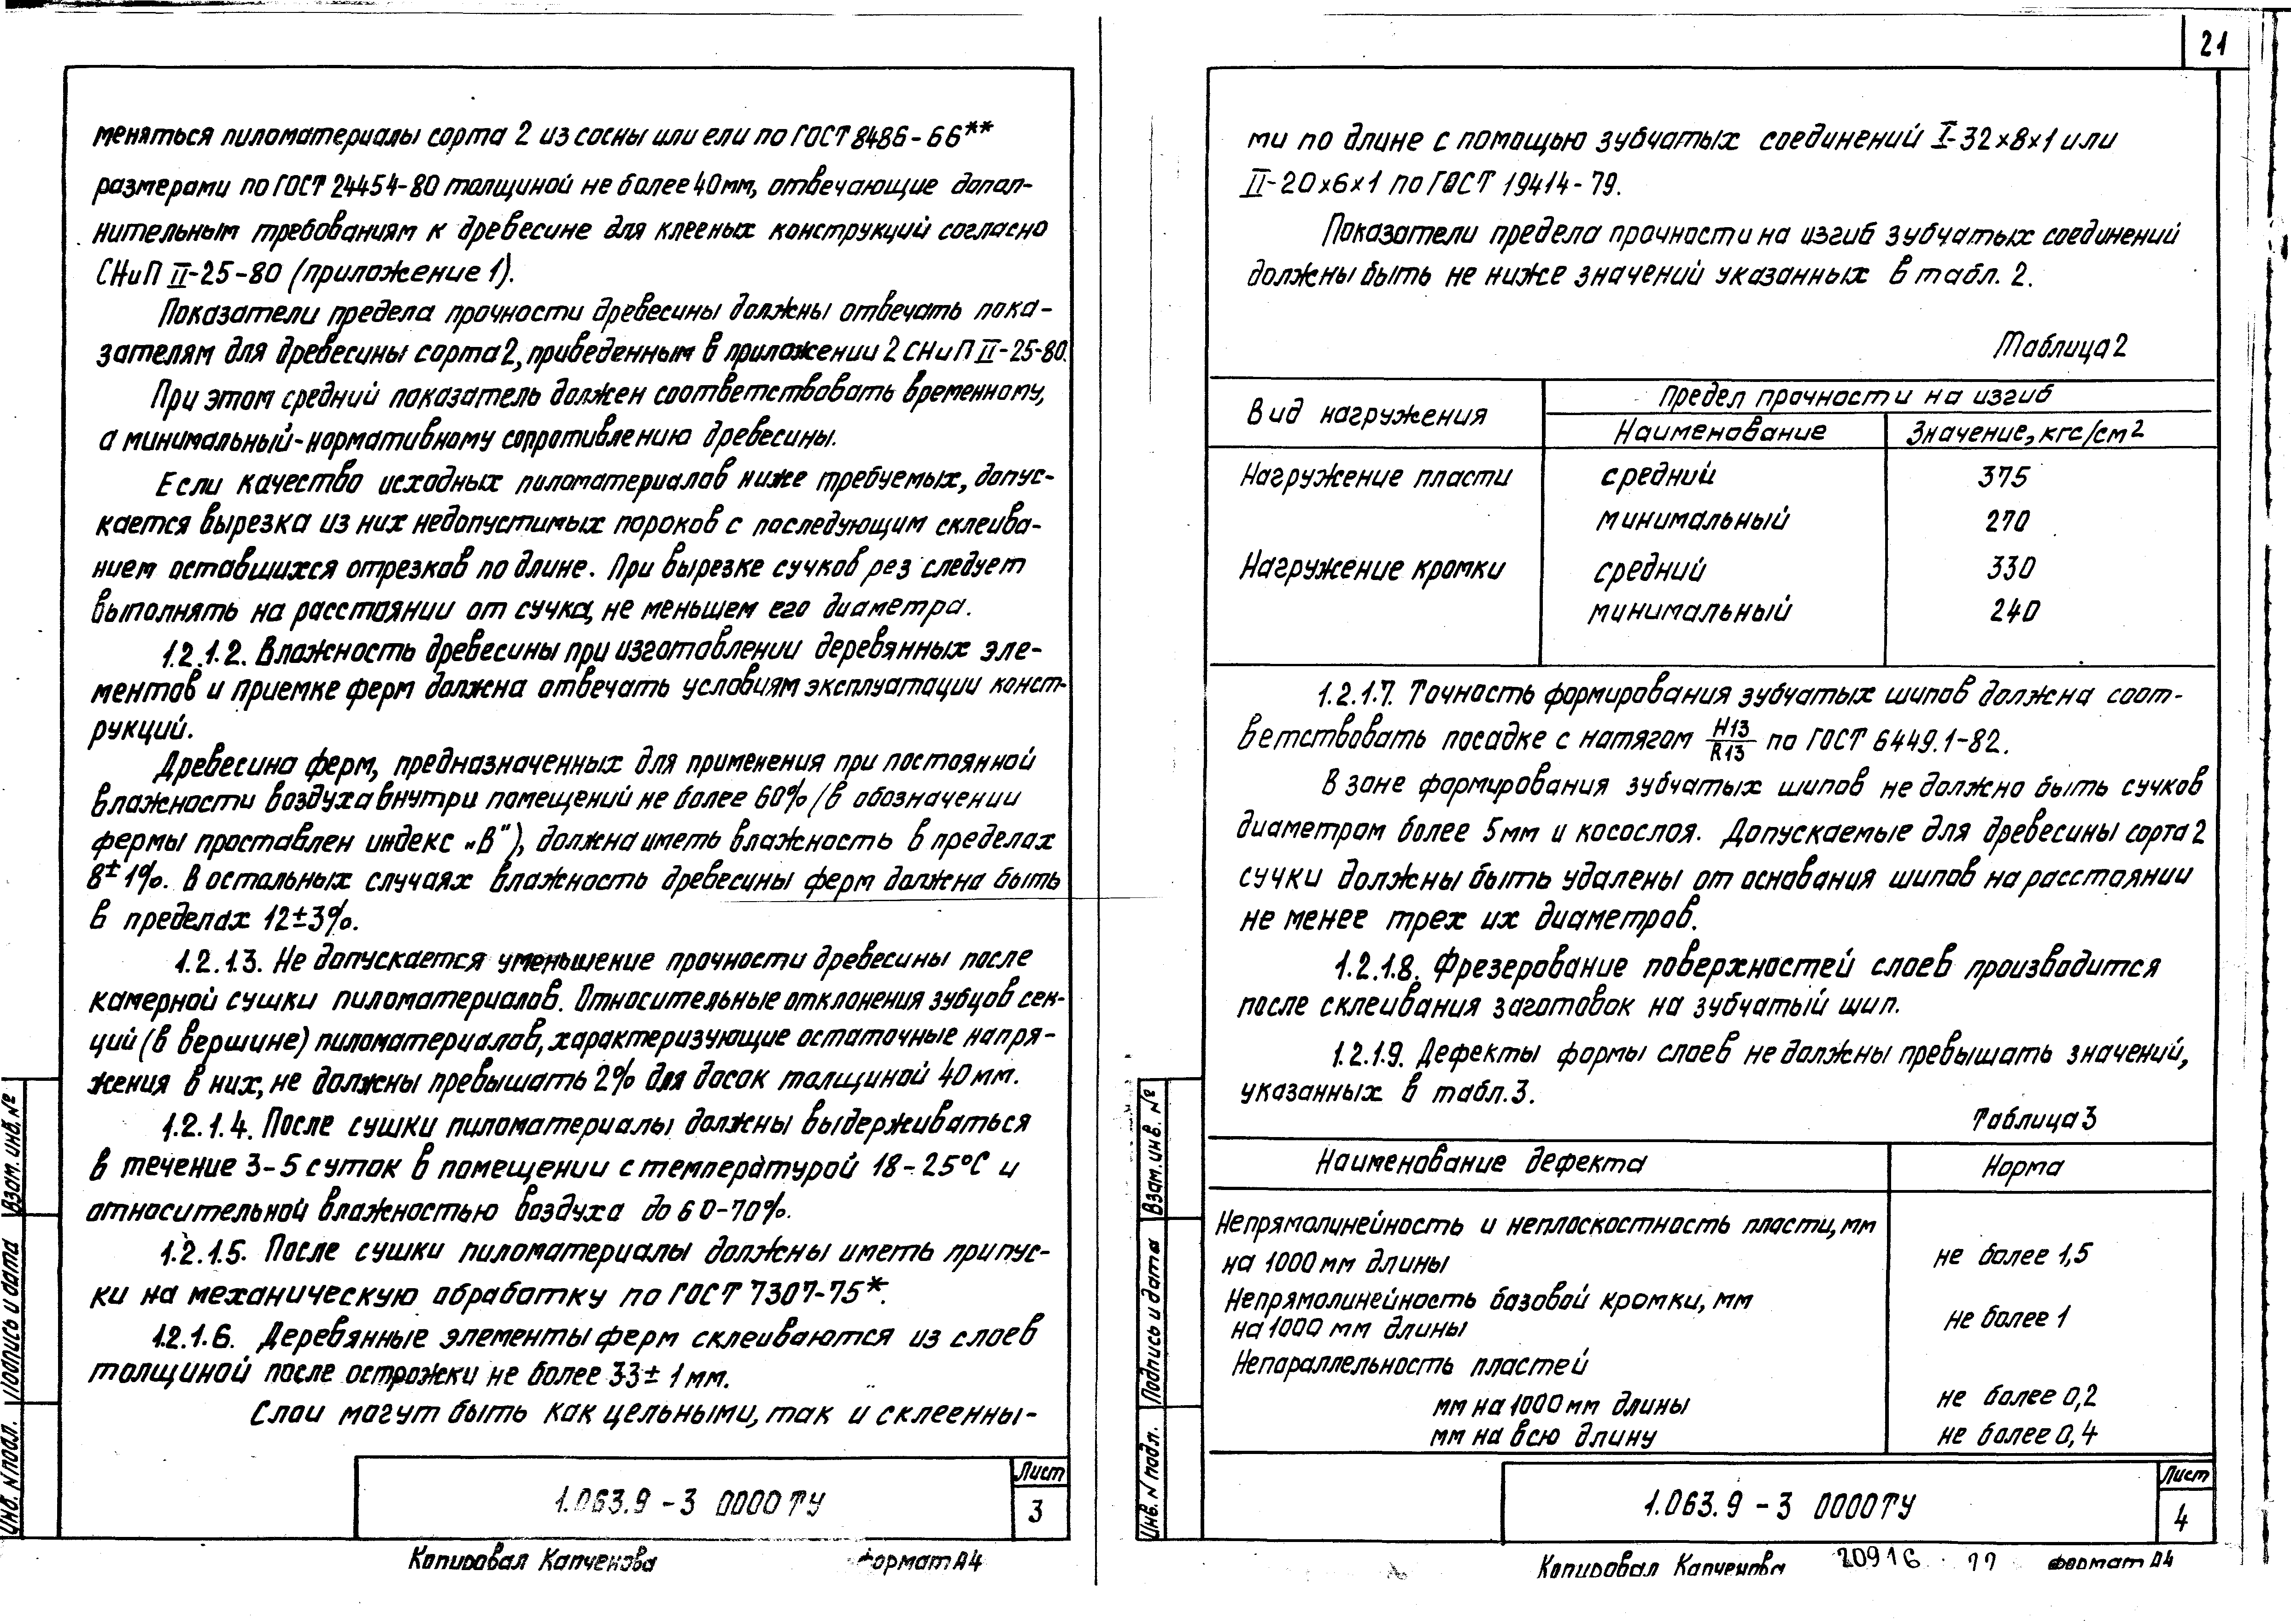 21
меняться пиломатериалы сорта 2 из сосны или ели по ГОСТ 8486-66**
размерами по ГОСТ 24454-80 толщиной не более 40мм, отвечающие допол-
нительным требованиям к древесине для клееных конструкций согласно
СНиП II-25-80 (приложение 1).
Показатели предела прочности древесины должны отвечать пока-
зателям для древесины сорта 2, приведенным в приложении 2 СНиП II-25-80.
При этом средний показатель должен соответствовать временному,
а минимальный-нормативному сопротивлению древесины.
Если качество исходных пиломатериалов ниже требуемых, допус-
кается вырезка из них недопустимых пороков с последующим склеива-
нием оставшихся отрезков по длине. При вырезке сучков рез следует
выполнять на расстоянии от сучка, не меньшем его диаметра.
1.2.1.2. Влажность древесины при изготовлении деревянных эле-
ментов и приемке ферм должна отвечать условиям эксплуатации конст-
рукций.
Древесина ферм, предназначенных для применения при постоянной
влажности воздуха внутри помещений не более 60% (в обозначении
фермы проставлен индекс „В"), должна иметь влажность в пределах
8±1%. В остальных случаях влажность древесины ферм должна быть
в пределах 12±3%.
1.2.1.3. Не допускается уменьшение прочности древесины после
камерной сушки пиломатериалов. Относительные отклонения зубцов сек-
ций (в вершине) пиломатериалов, характеризующие остаточные напря-
жения в них, не должны превышать 2% для досок толщиной 40 мм.
1.2.1.4. После сушки пиломатериалы должны выдерживаться
в течение 3-5 суток в помещении с температурой 18-25°С и
относительной влажностью воздуха до 60-70%.
1.2.1.5. После сушки пиломатериалы должны иметь припус-
ки на механическую обработку по ГОСТ 7307-75*.
1.2.1.6. Деревянные элементы ферм склеиваются из слоев
толщиной после острожки не более 33±1мм.
Слои могут быть как цельными, так и склеенны-
Взам. инв. №
Подпись и дата
Инв. N подл.
1.063.9-3 0000ТУ
Лист
3
Копировал Капченова
Формат А4
ми по длине с помощью зубчатых соединений I-32×8×1 или
II-20×6×1 по ГОСТ 19414-79.
Показатели предела прочности на изгиб зубчатых соединений
должны быть не ниже значений указанных в табл. 2.
Таблица 2
Вид нагружения
Предел прочности на изгиб
Наименование
Значение, кгс/см2
Нагружение пласти средний 375
минимальный 270
Нагружение кромки средний 330
минимальный 240
1.2.1.7. Точность формирования зубчатых шипов должна соот-
ветствовать посадке с натягом H13/R13 по ГОСТ 6449.1-82.
В зоне формирования зубчатых шипов не должно быть сучков
диаметром более 5мм и косослоя. Допускаемые для древесины сорта 2
сучки должны быть удалены от основания шипов на расстоянии
не менее трех их диаметров.
1.2.1.8. Фрезерование поверхностей слоев производится
после склеивания заготовок на зубчатый шип.
1.2.1.9. Дефекты формы слоев не должны превышать значений,
указанных в табл. 3.
Таблица 3
Наименование дефекта Норма
Непрямолинейность и неплоскостность пласти, мм
на 1000 мм длины не более 1,5
Непрямолинейность базовой кромки, мм
на 1000 мм длины не более 1
Непараллельность пластей
мм на 1000 мм длины не более 0,2
мм на всю длину не более 0,4
Взам. инв. №
Подпись и дата
Инв. N подл.
1.063.9-3 0000ТУ
Лист
4
Копировал Капченова
20916
Формат А4